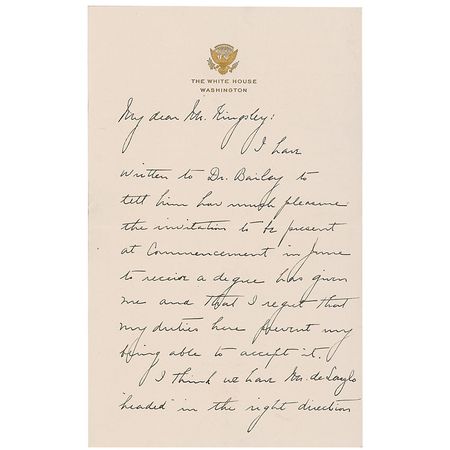 THE WHITE HOUSE
WASHINGTON
My dear Mr. Kingsley:
I have
written to Dr. Bailey to
tell him how much pleasure
the invitation to be present
at Commencement in June
to receive a degree has given
me and that I regret that
my duties here prevent my
being able to accept it.
I think we have
headed in the right direction